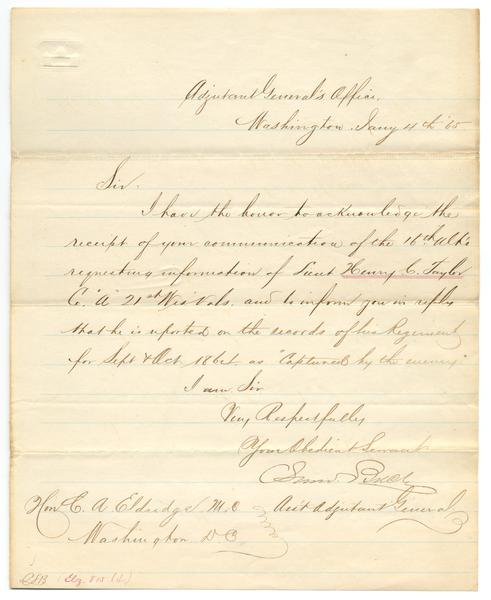 Adjutant General's Office,
Washington, Jany 4th '65
Sir,
I have the honor to acknowledge the
receipt of your communication of the 16th Ulto
requesting information of Lieut Henry C. Taylor
Co. "A" 21st Wis Vols. and to inform you in reply
that he is reported on the records of his Regiment
for Sept & Oct 1864 as "Captured by the enemy"
I am Sir
Very Respectfully
Your Obedient Servant
Ass't Adjutant General
Hon. C. A. Eldridge, M.C.
Washington D.C.